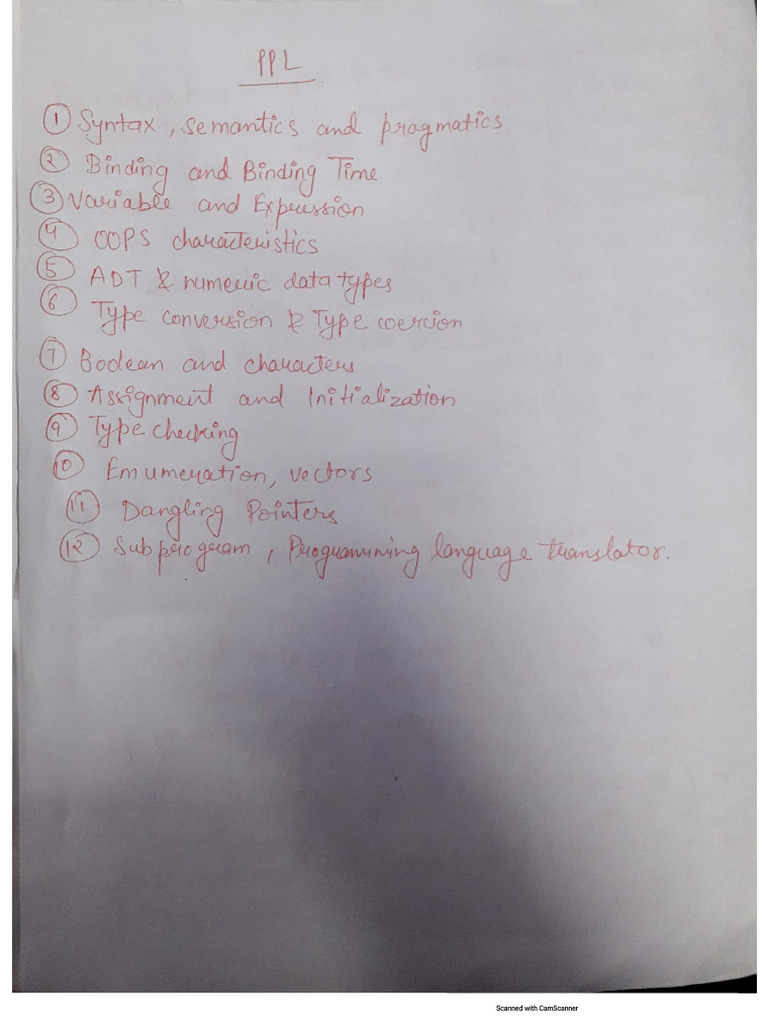 PPL
① Syntax, semantics and pragmatics
② Binding and Binding Time
③ Variable and Expression
④ OOPS characteristics
⑤ ADT & numeric data types
⑥ Type conversion & Type coercion
⑦ Boolean and characters
⑧ Assignment and Initialization
⑨ Type checking
⑩ Enumeration, vectors
⑪ Dangling Pointers
⑫ Subprogram, Programming language translator.
Scanned with CamScanner